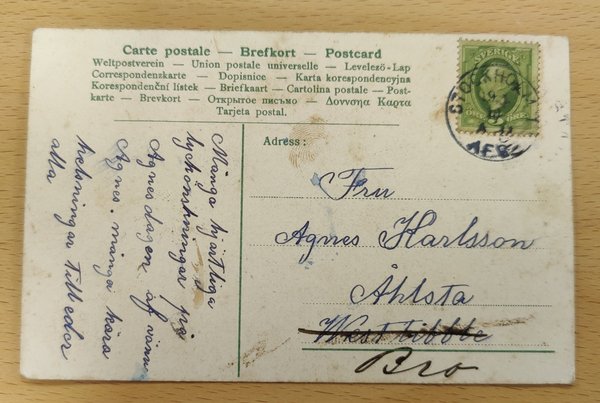 Carte postale — Brefkort — Postcard
Weltpostverein — Union postale universelle — Levelező-Lap
Correspondenzkarte — Dopisnice — Karta korespondencyjna
Korespondenční lístek — Briefkaart — Cartolina postale — Post-
karte — Brevkort — Открытое письмо — Δοννσηα Καρτα
Tarjeta postal.
SVERIGE
STOCKHOLM
Adress:
Fru
Agnes Karlsson
Åhlsta
West tibble
Bro
Många hjärtliga
lyckönskningar på
Agnesdagen af vänn
Agnes. många kära
helsningar till eder
alla